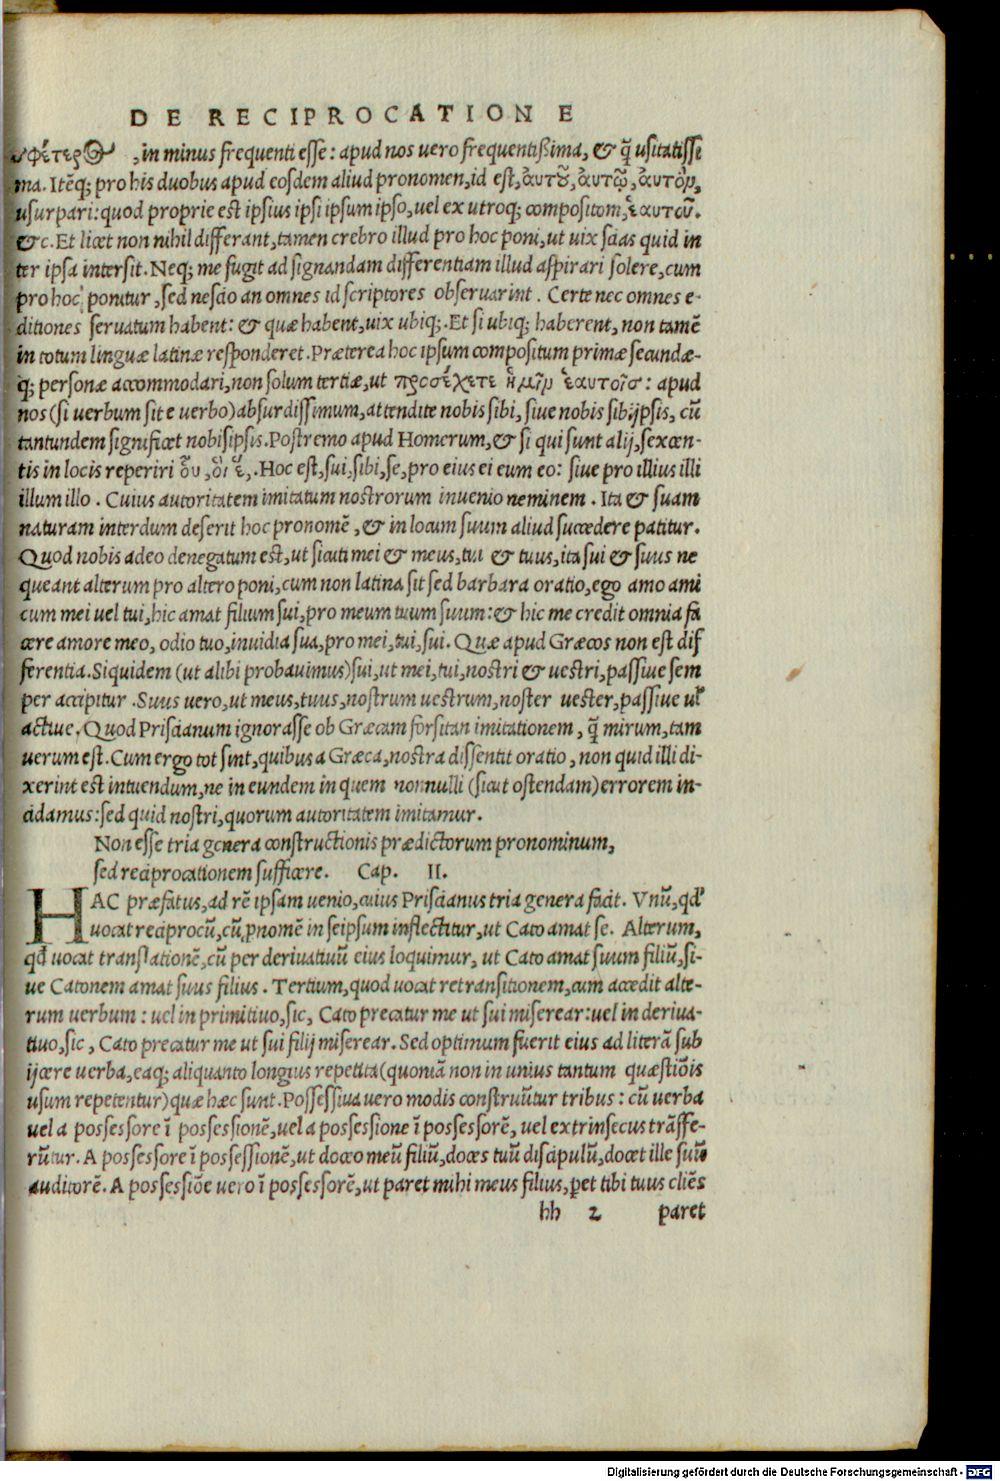 DE RECIPROCATIONE
σφέτερος, in minus frequenti esse: apud nos vero frequentißima, & q̃ usitatisse
ma. Itẽq; pro his duobus apud eosdem aliud pronomen, id est, ἁυτοῦ, ἁυτῷ, ἁυτὸν,
usurpari: quod proprie est ipsius ipsi ipsum ipso, vel ex utroq; compositom, ἑαυτοῦ.
&c. Et licet non nihil differant, tamen crebro illud pro hoc poni, ut vix scias quid in
ter ipsa intersit. Neq; me fugit ad signandam differentiam illud aspirari solere, cum
pro hoc ponitur, sed nescio an omnes id scriptores observarint. Certe nec omnes e-
ditiones servatum habent: & quæ habent, vix ubiq;. Et si ubiq; haberent, non tamẽ
in totum linguæ latinæ responderet. Præterea hoc ipsum compositum primæ secundæ-
q; personæ accommodari, non solum tertiæ, ut προσέχετε ἡμῖν ἑαυτοῖς: apud
nos (si verbum sit e verbo) absurdissimum, attendite nobis sibi, sive nobis sibijpsis, cũ
tantundem significet nobisipsis. Postremo apud Homerum, & si qui sunt alij, sexcen-
tis in locis reperiri οὗ, οἷ ἕ,. Hoc est, sui, sibi, se, pro eius ei eum eo: sive pro illius illi
illum illo. Cuius autoritatem imitatum nostrorum invenio neminem. Ita & suam
naturam interdum deserit hoc pronomẽ, & in locum suum aliud succedere patitur.
Quod nobis adeo denegatum est, ut sicuti mei & meus, tui & tuus, ita sui & suus ne
queant alterum pro altero poni, cum non latina sit sed barbara oratio, ego amo ami
cum mei vel tui, hic amat filium sui, pro meum tuum suum: & hic me credit omnia fa
cere amore meo, odio tuo, invidia sua, pro mei, tui, sui. Quæ apud Græcos non est dif
ferentia. Siquidem (ut alibi probavimus) sui, ut mei, tui, nostri & vestri, passive sem
per accipitur. Suus vero, ut meus, tuus, nostrum vestrum, noster vester, passive ul'
active. Quod Priscianum ignorasse ob Græcam forsitan imitationem, q̃ mirum, tam
verum est. Cum ergo tot sint, quibus a Græca, nostra dissentit oratio, non quid illi di-
xerint est intuendum, ne in eundem in quem nonnulli (sicut ostendam) errorem in-
cidamus: sed quid nostri, quorum autoritatem imitamur.
Non esse tria genera constructionis prædictorum pronominum,
sed reciprocationem sufficere. Cap. II.
HAC præfatus, ad rẽ ipsam venio, cuius Priscianus tria genera facit. Vnũ, qd'
vocat reciprocũ, cũ pnomẽ in seipsum inflectitur, ut Cato amat se. Alterum,
qd vocat translationẽ, cũ per derivativũ eius loquimur, ut Cato amat suum filiũ, si-
ve Catonem amat suus filius. Tertium, quod vocat retransitionem, cum accedit alte-
rum verbum: vel in primitivo, sic, Cato precatur me ut sui miserear: vel in deriva-
tivo, sic, Cato precatur me ut sui filij miserear. Sed optimum fuerit eius ad literã sub
ijcere verba, eaq; aliquanto longius repetita (quoniã non in unius tantum quæstiõis
usum repetentur) quæ hæc sunt. Possessiva vero modis construũtur tribus: cũ verba
vel a possessore ĩ possessionẽ, vel a possessione ĩ possessorẽ, vel extrinsecus trãsfe-
rũtur. A possessore ĩ possessionẽ, ut doceo meũ filiũ, doces tuũ discipulũ, docet ille suũ
auditorẽ. A possessiõe vero ĩ possessorẽ, ut paret mihi meus filius, pet tibi tuus cliẽs
hh 2 paret
Digitalisierung gefördert durch die Deutsche Forschungsgemeinschaft - DFG